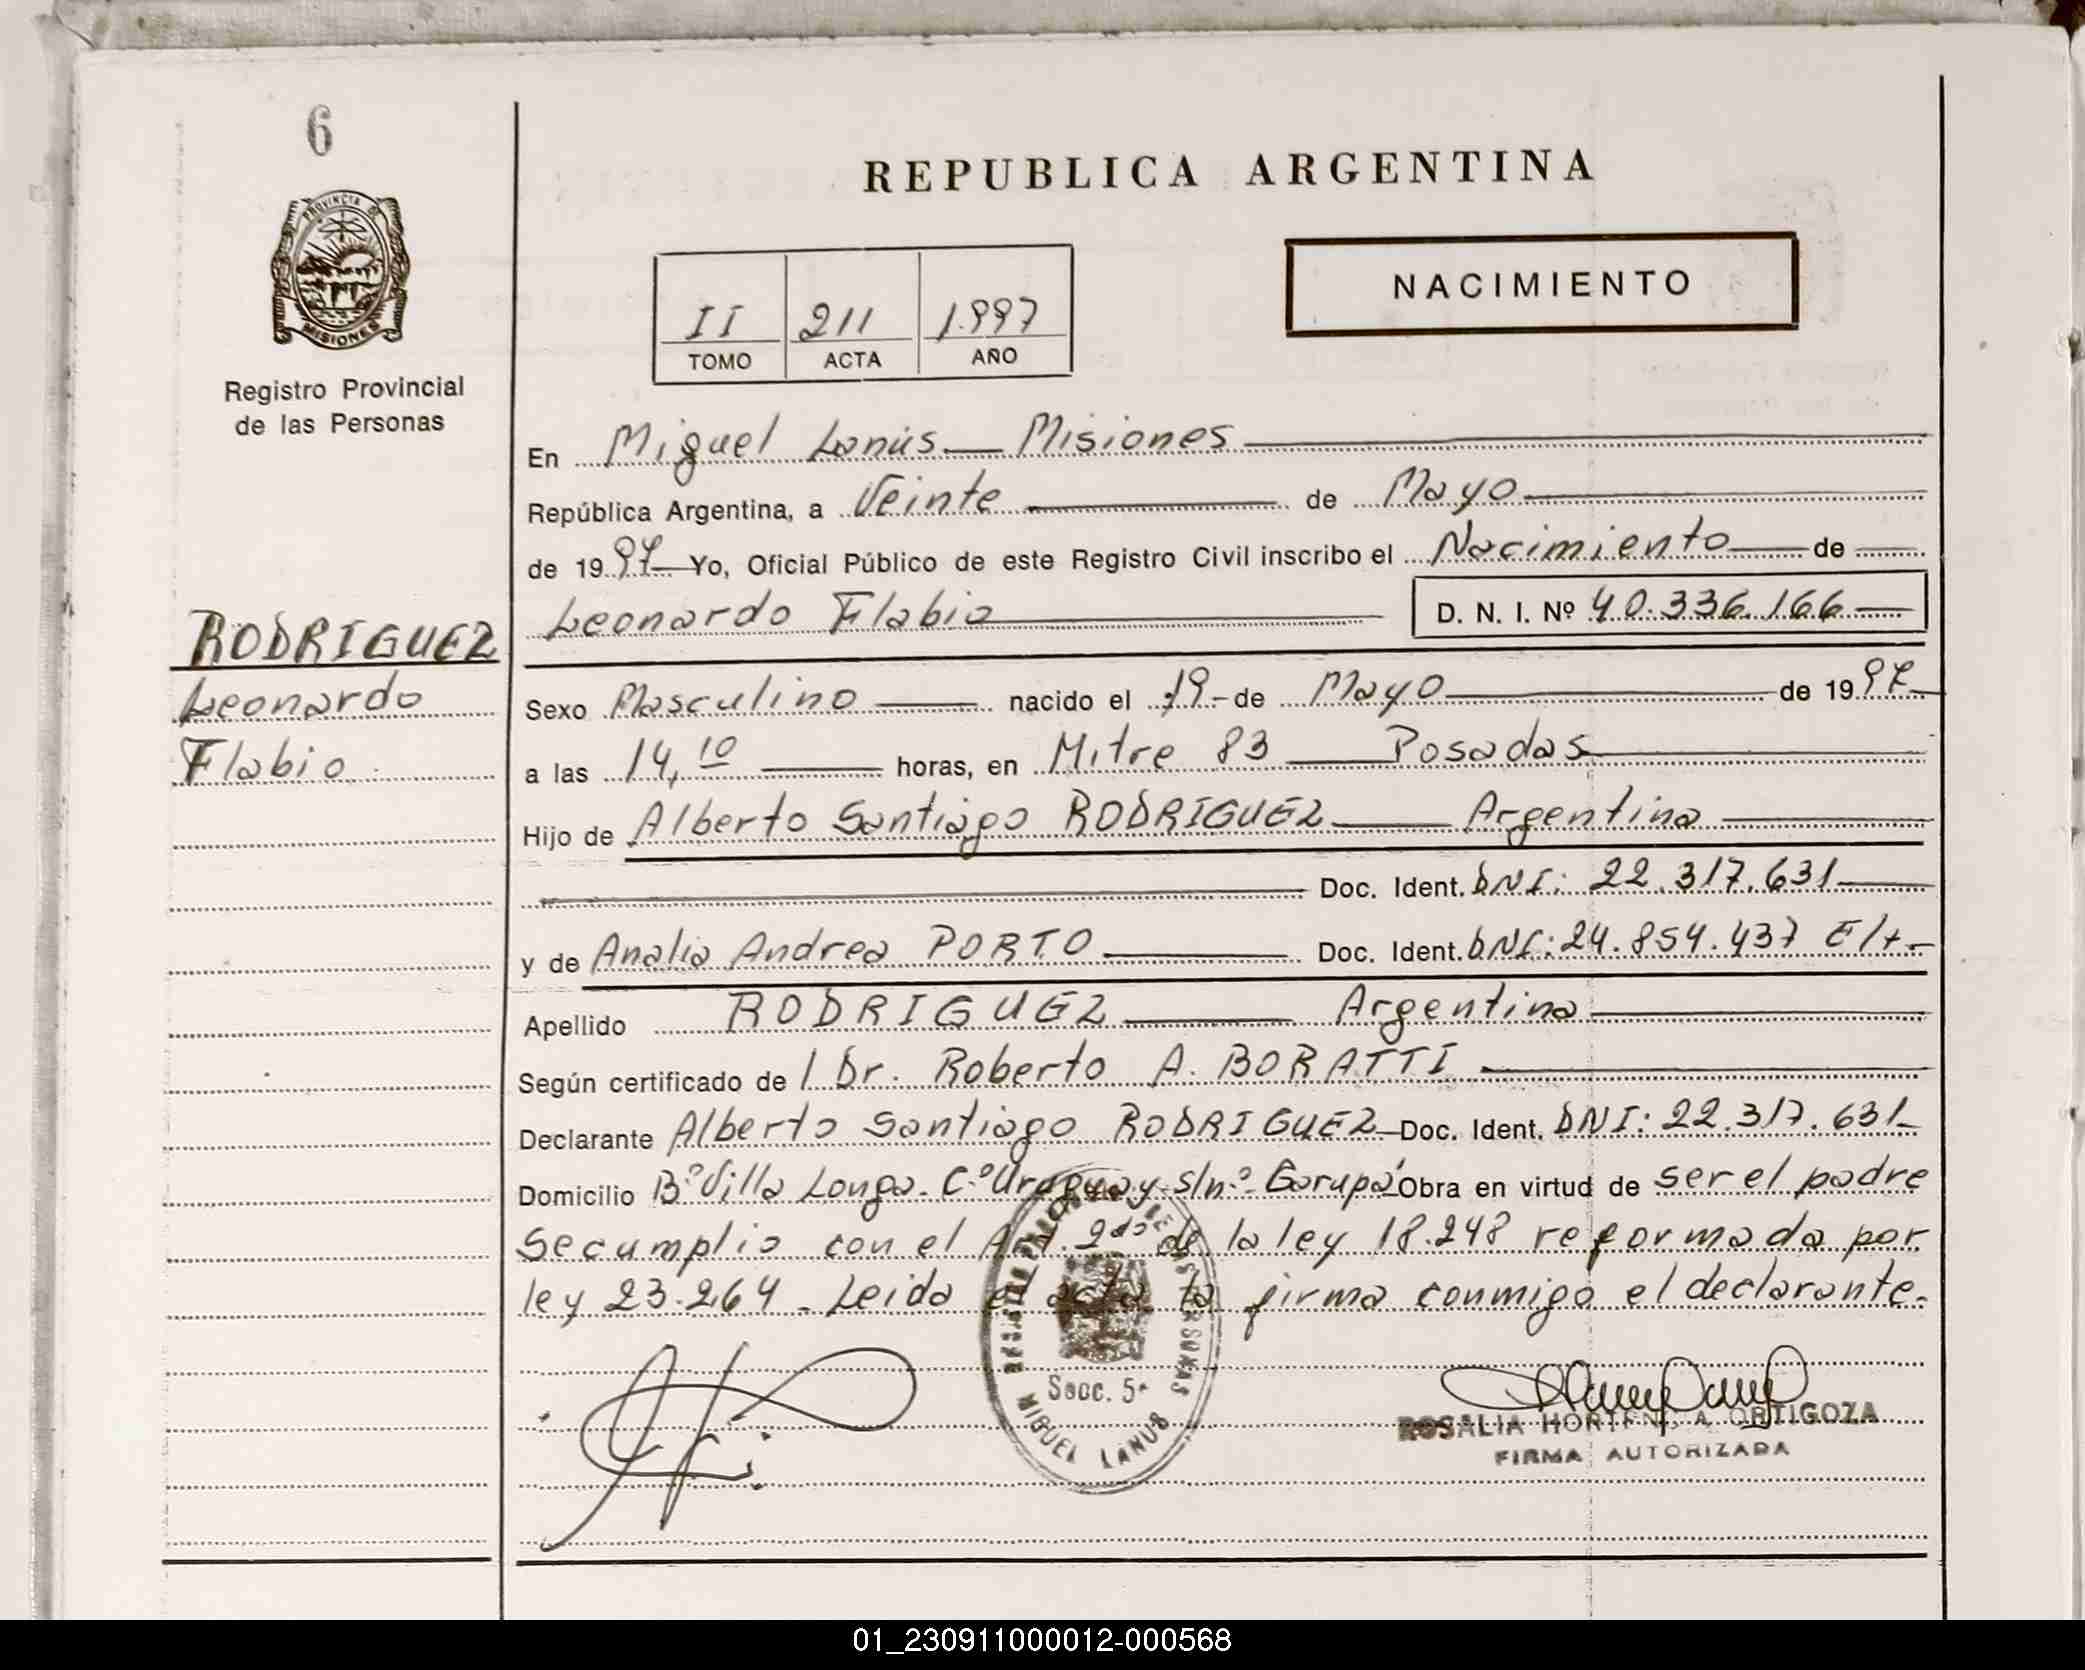 6
REPUBLICA ARGENTINA
PROVINCIA DE
MISIONES
NACIMIENTO
II 211 1.997
TOMO ACTA AÑO
Registro Provincial
de las Personas
En Miguel Lanús — Misiones
República Argentina, a Veinte de Mayo
de 1997 Yo, Oficial Público de este Registro Civil inscribo el Nacimiento de
Leonardo Flabio D. N. I. Nº 40.336.166
RODRIGUEZ
Leonardo
Flabio
Sexo Masculino nacido el 19 de Mayo de 1997
a las 14,10 horas, en Mitre 83 — Posadas
Hijo de Alberto Santiago RODRIGUEZ — Argentina
Doc. Ident. DNI: 22.317.631
y de Analia Andrea PORTO Doc. Ident. DNI: 24.854.437
Apellido RODRIGUEZ — Argentina
Según certificado de / Dr. Roberto A. BORATTI
Declarante Alberto Santiago RODRIGUEZ Doc. Ident. DNI: 22.317.631
Domicilio Bº Villa Longa. C.º Uruguay s/nº. Garupá Obra en virtud de ser el padre
Se cumplio con el Art. 2do de la ley 18.248 reformada por
ley 23.264. Leida el acta la firma conmigo el declarante.
Secc. 5ª
MIGUEL LANUS
ROSALIA HORTENSIA ORTIGOZA
FIRMA AUTORIZADA
01_230911000012-000568